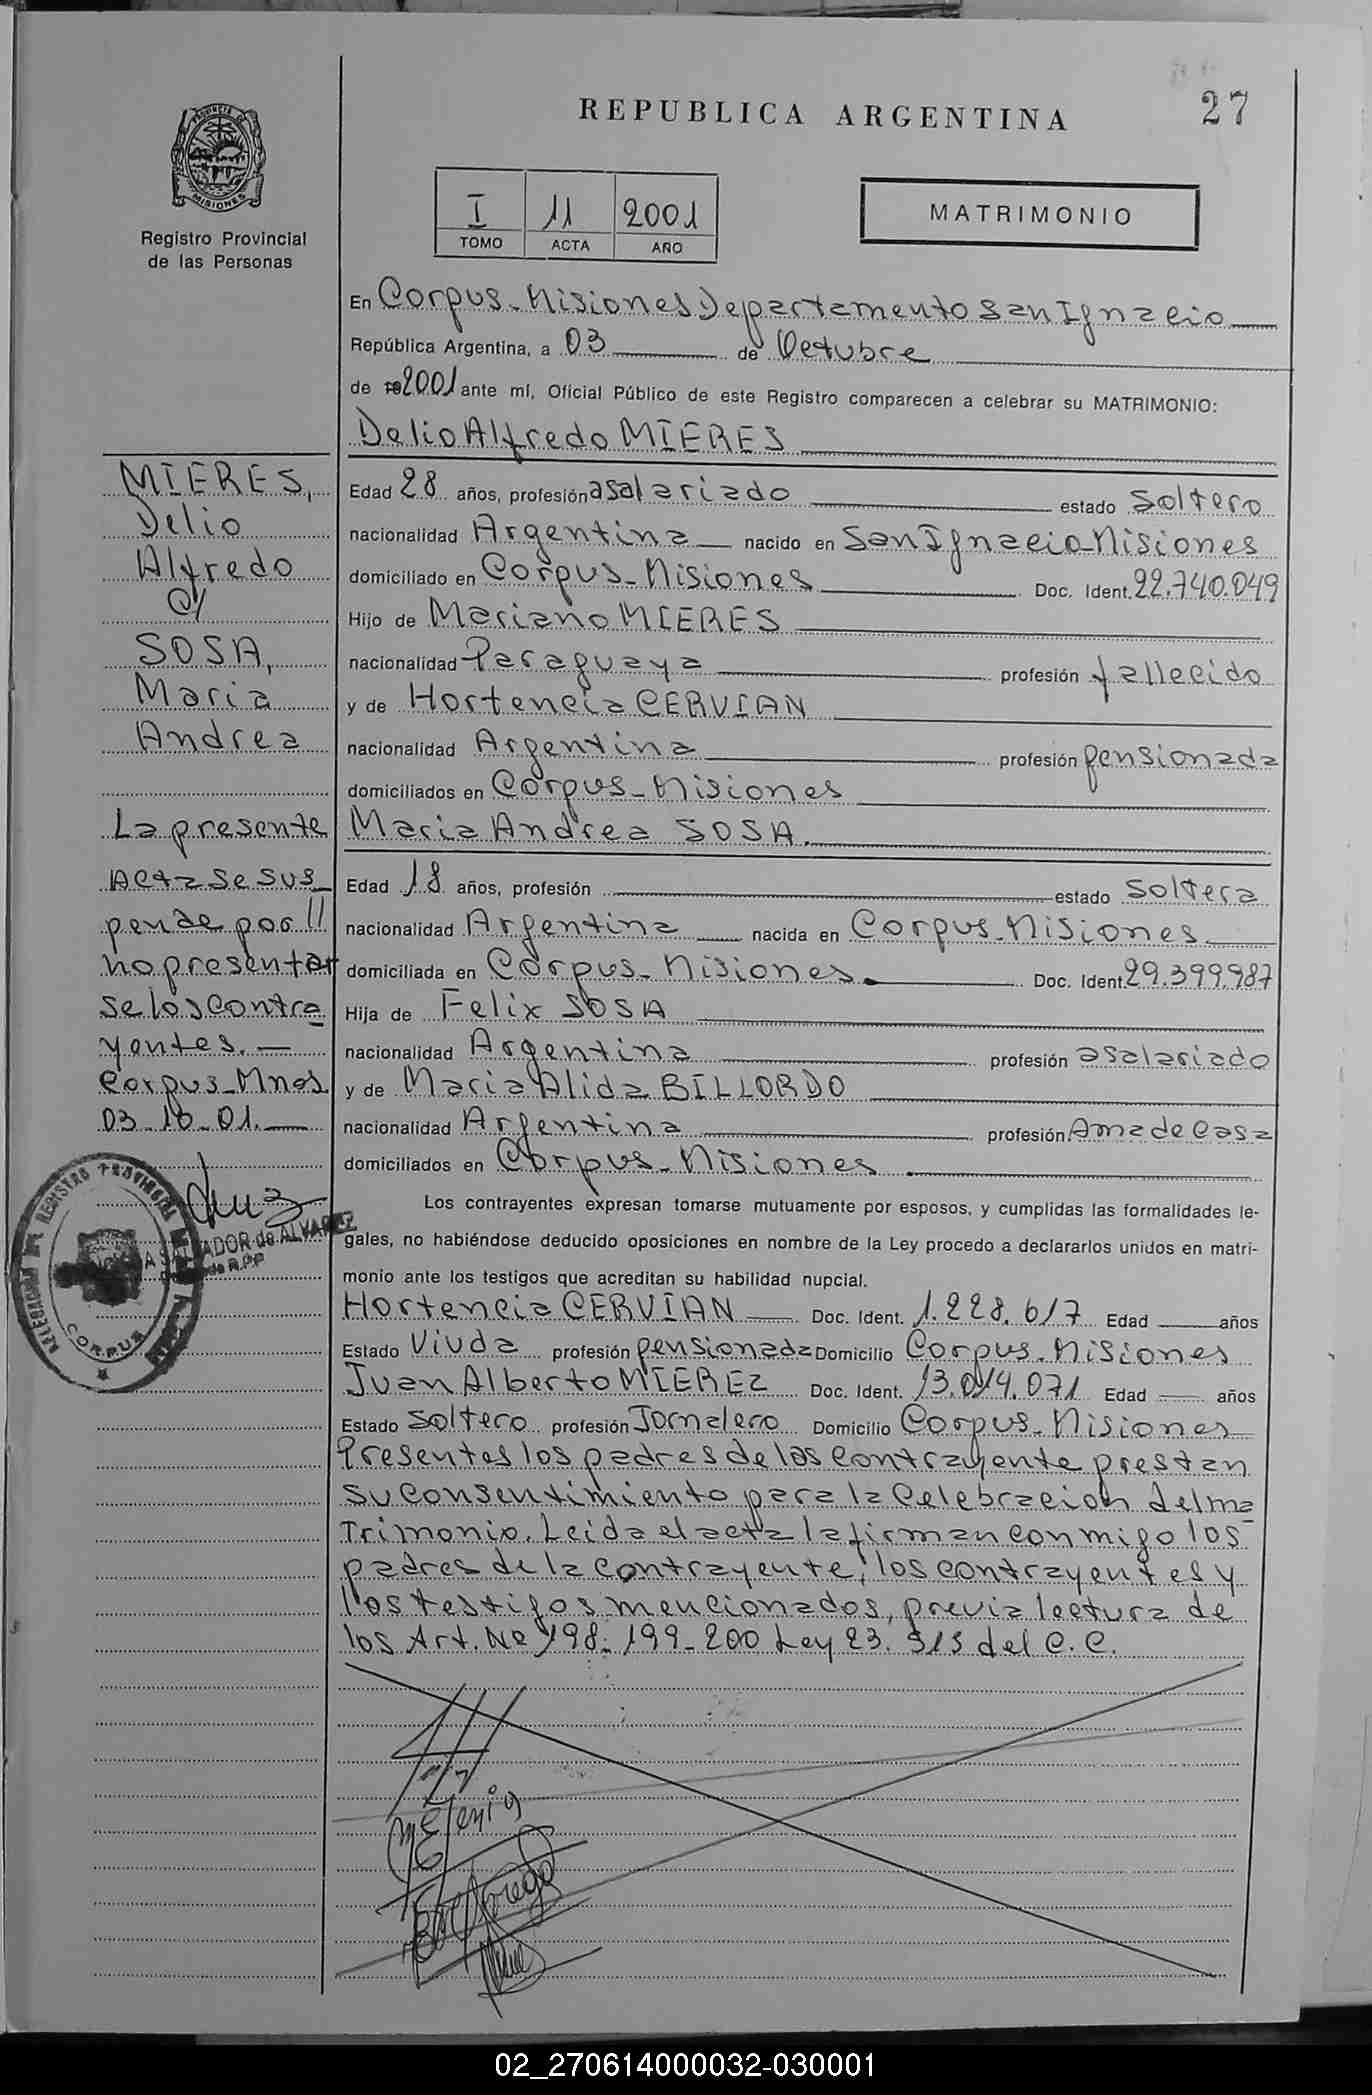 REPUBLICA ARGENTINA
27
PROVINCIA DE
MISIONES
Registro Provincial
de las Personas
I 11 2001
TOMO ACTA AÑO
MATRIMONIO
En Corpus - Misiones Departamento San Ignacio
República Argentina, a 03 de Octubre
de 2001 ante mí, Oficial Público de este Registro comparecen a celebrar su MATRIMONIO:
Delio Alfredo MIERES
Edad 28 años, profesión asalariado estado Soltero
nacionalidad Argentina nacido en San Ignacio-Misiones
domiciliado en Corpus - Misiones Doc. Ident. 22.740.049
Hijo de Mariano MIERES
nacionalidad Paraguaya profesión fallecido
y de Hortencia CERVIAN
nacionalidad Argentina profesión pensionada
domiciliados en Corpus - Misiones
Maria Andrea SOSA.
Edad 18 años, profesión estado Soltera
nacionalidad Argentina nacida en Corpus - Misiones
domiciliada en Corpus - Misiones Doc. Ident. 29.399.987
Hija de Felix SOSA
nacionalidad Argentina profesión asalariado
y de Maria Alida BILLORDO
nacionalidad Argentina profesión Ama de Casa
domiciliados en Corpus - Misiones
Los contrayentes expresan tomarse mutuamente por esposos, y cumplidas las formalidades le-
gales, no habiéndose deducido oposiciones en nombre de la Ley procedo a declararlos unidos en matri-
monio ante los testigos que acreditan su habilidad nupcial.
Hortencia CERVIAN Doc. Ident. 1.228.617 Edad años
Estado Viuda profesión pensionada Domicilio Corpus - Misiones
Juan Alberto MIEREZ Doc. Ident. 13.014.071 Edad años
Estado Soltero profesión Jornalero Domicilio Corpus - Misiones
Presentes los padres de las contrayente prestan
su consentimiento para la Celebracion del ma
trimonio. Leida el acta la firman conmigo los
padres de la contrayente, los contrayentes y
los testigos mencionados, previa lectura de
los Art. Nº 198 - 199 - 200 Ley 23. 515 del C. C.
MIERES,
Delio
Alfredo
C/
SOSA,
Maria
Andrea
La presente
Acta se sus
pende por //
no presentar
se los contra
yentes. -
Corpus - Mnes
03 - 10 - 01. -
REGISTRO PROVINCIAL
DELEGACION
CORPUS
SALVADOR de ALVAREZ
R.P.P
02_270614000032-030001